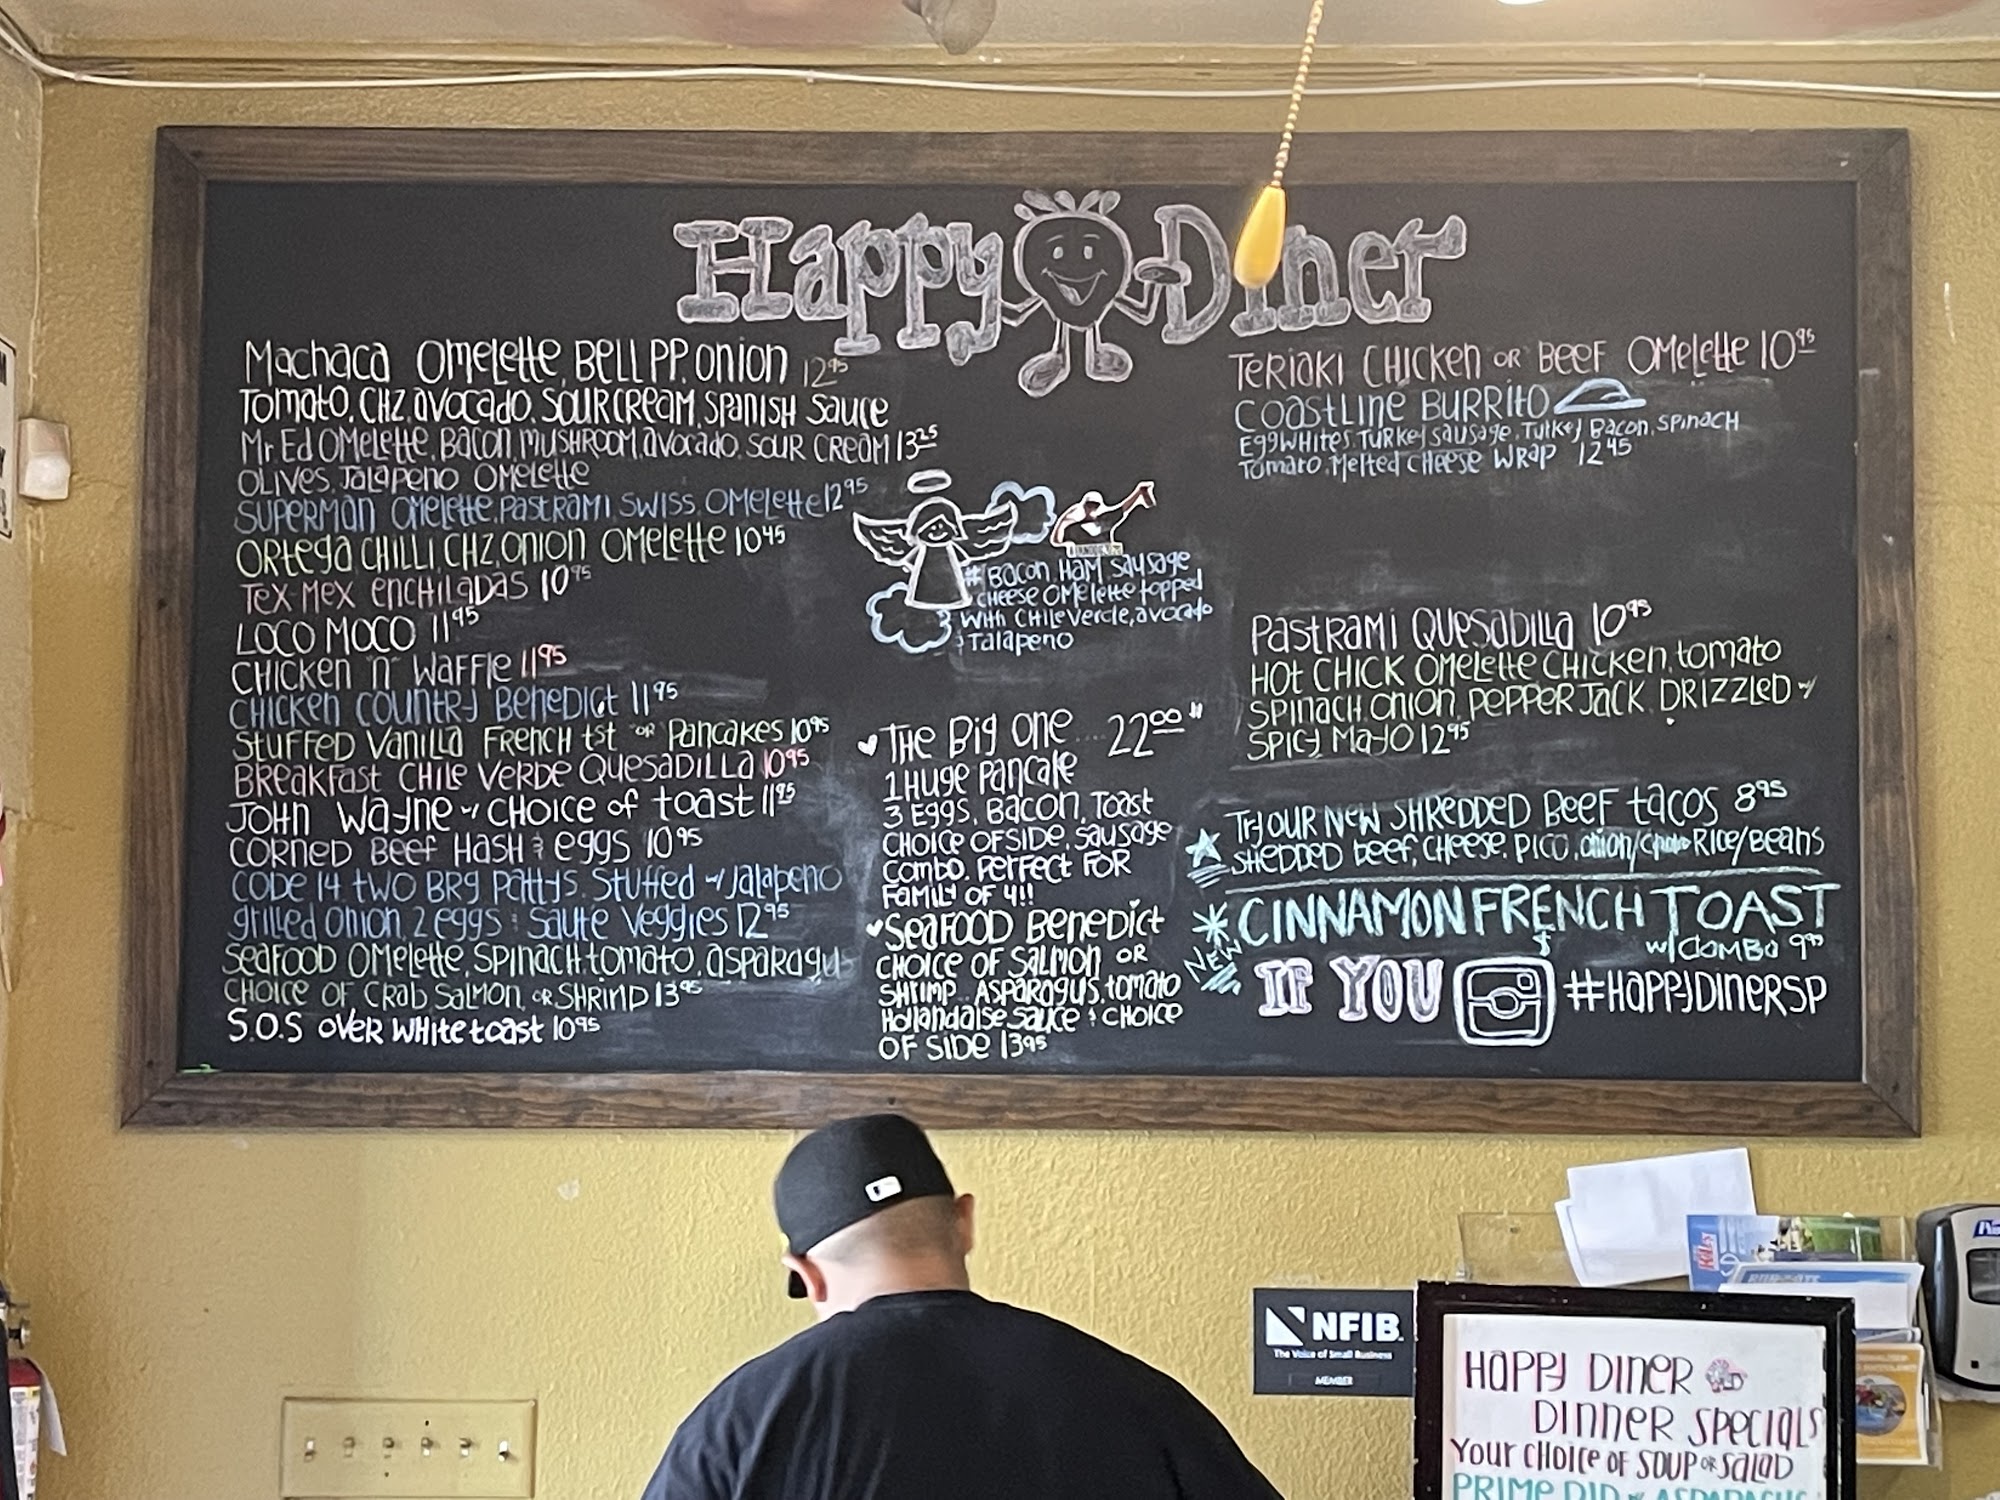 Happy Diner
Machaca Omelette, Bell PP, Onion 12⁹⁵
Tomato, CHZ, avocado, sour cream, Spanish Sauce
Mr Ed Omelette, Bacon, mushroom, avocado, sour cream 13²⁵
Olives, Jalapeno Omelette
Superman Omelette, Pastrami, Swiss Omelette 12⁹⁵
Ortega Chilli, CHZ, Onion Omelette 10⁴⁵
Tex-Mex Enchiladas 10⁹⁵
Loco Moco 11⁹⁵
Chicken "n" Waffle 11⁹⁵
Chicken Country Benedict 11⁹⁵
Stuffed Vanilla French tst "or" Pancakes 10⁹⁵
Breakfast Chile Verde Quesadilla 10⁹⁵
John Wayne w/ choice of toast 11⁹⁵
Corned Beef Hash & eggs 10⁹⁵
Code 14 two BRG Pattys, Stuffed w/ Jalapeno
grilled onion, 2 eggs & saute veggies 12⁹⁵
Seafood Omelette, Spinach, tomato, asparagus
Choice of, Crab Salmon, or Shrimp 13⁹⁵
S.O.S over white toast 10⁹⁵
# Bacon, Ham, Sausage
cheese omelette topped
with Chile Verde, avocado
& Jalapeno
The Big One ... 22⁰⁰
1 Huge Pancake
3 Eggs, Bacon, Toast
choice of side, sausage
Combo. Perfect for
Family of 4!!
Seafood Benedict
choice of Salmon or
Shrimp, Asparagus, tomato
Hollandaise sauce & choice
of side 13⁹⁵
Teriaki Chicken or Beef Omelette 10⁹⁵
Coastline Burrito
Eggwhites, Turkey sausage, Turkey Bacon, spinach
Tomato, Melted cheese Wrap 12⁴⁵
Pastrami Quesadilla 10⁹⁵
Hot Chick Omelette Chicken, tomato
Spinach, onion, pepper Jack, Drizzled w/
Spicy Mayo 12⁹⁵
Try our New Shredded Beef tacos 8⁹⁵
Shedded beef, cheese, pico, onion/ Rice/Beans
NEW
CINNAMON FRENCH TOAST
w/ COMBO
IF YOU
#HappyDinerSP
NFIB
The Voice of Small Business
MEMBER
Happy Diner
Dinner Specials
Your choice of soup or salad